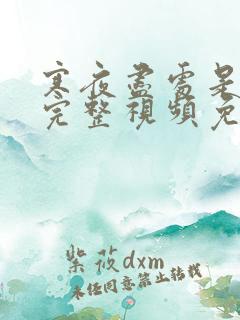 寒夜盡處是
完整視頻免
紫莜dxm
未经同意禁止转载